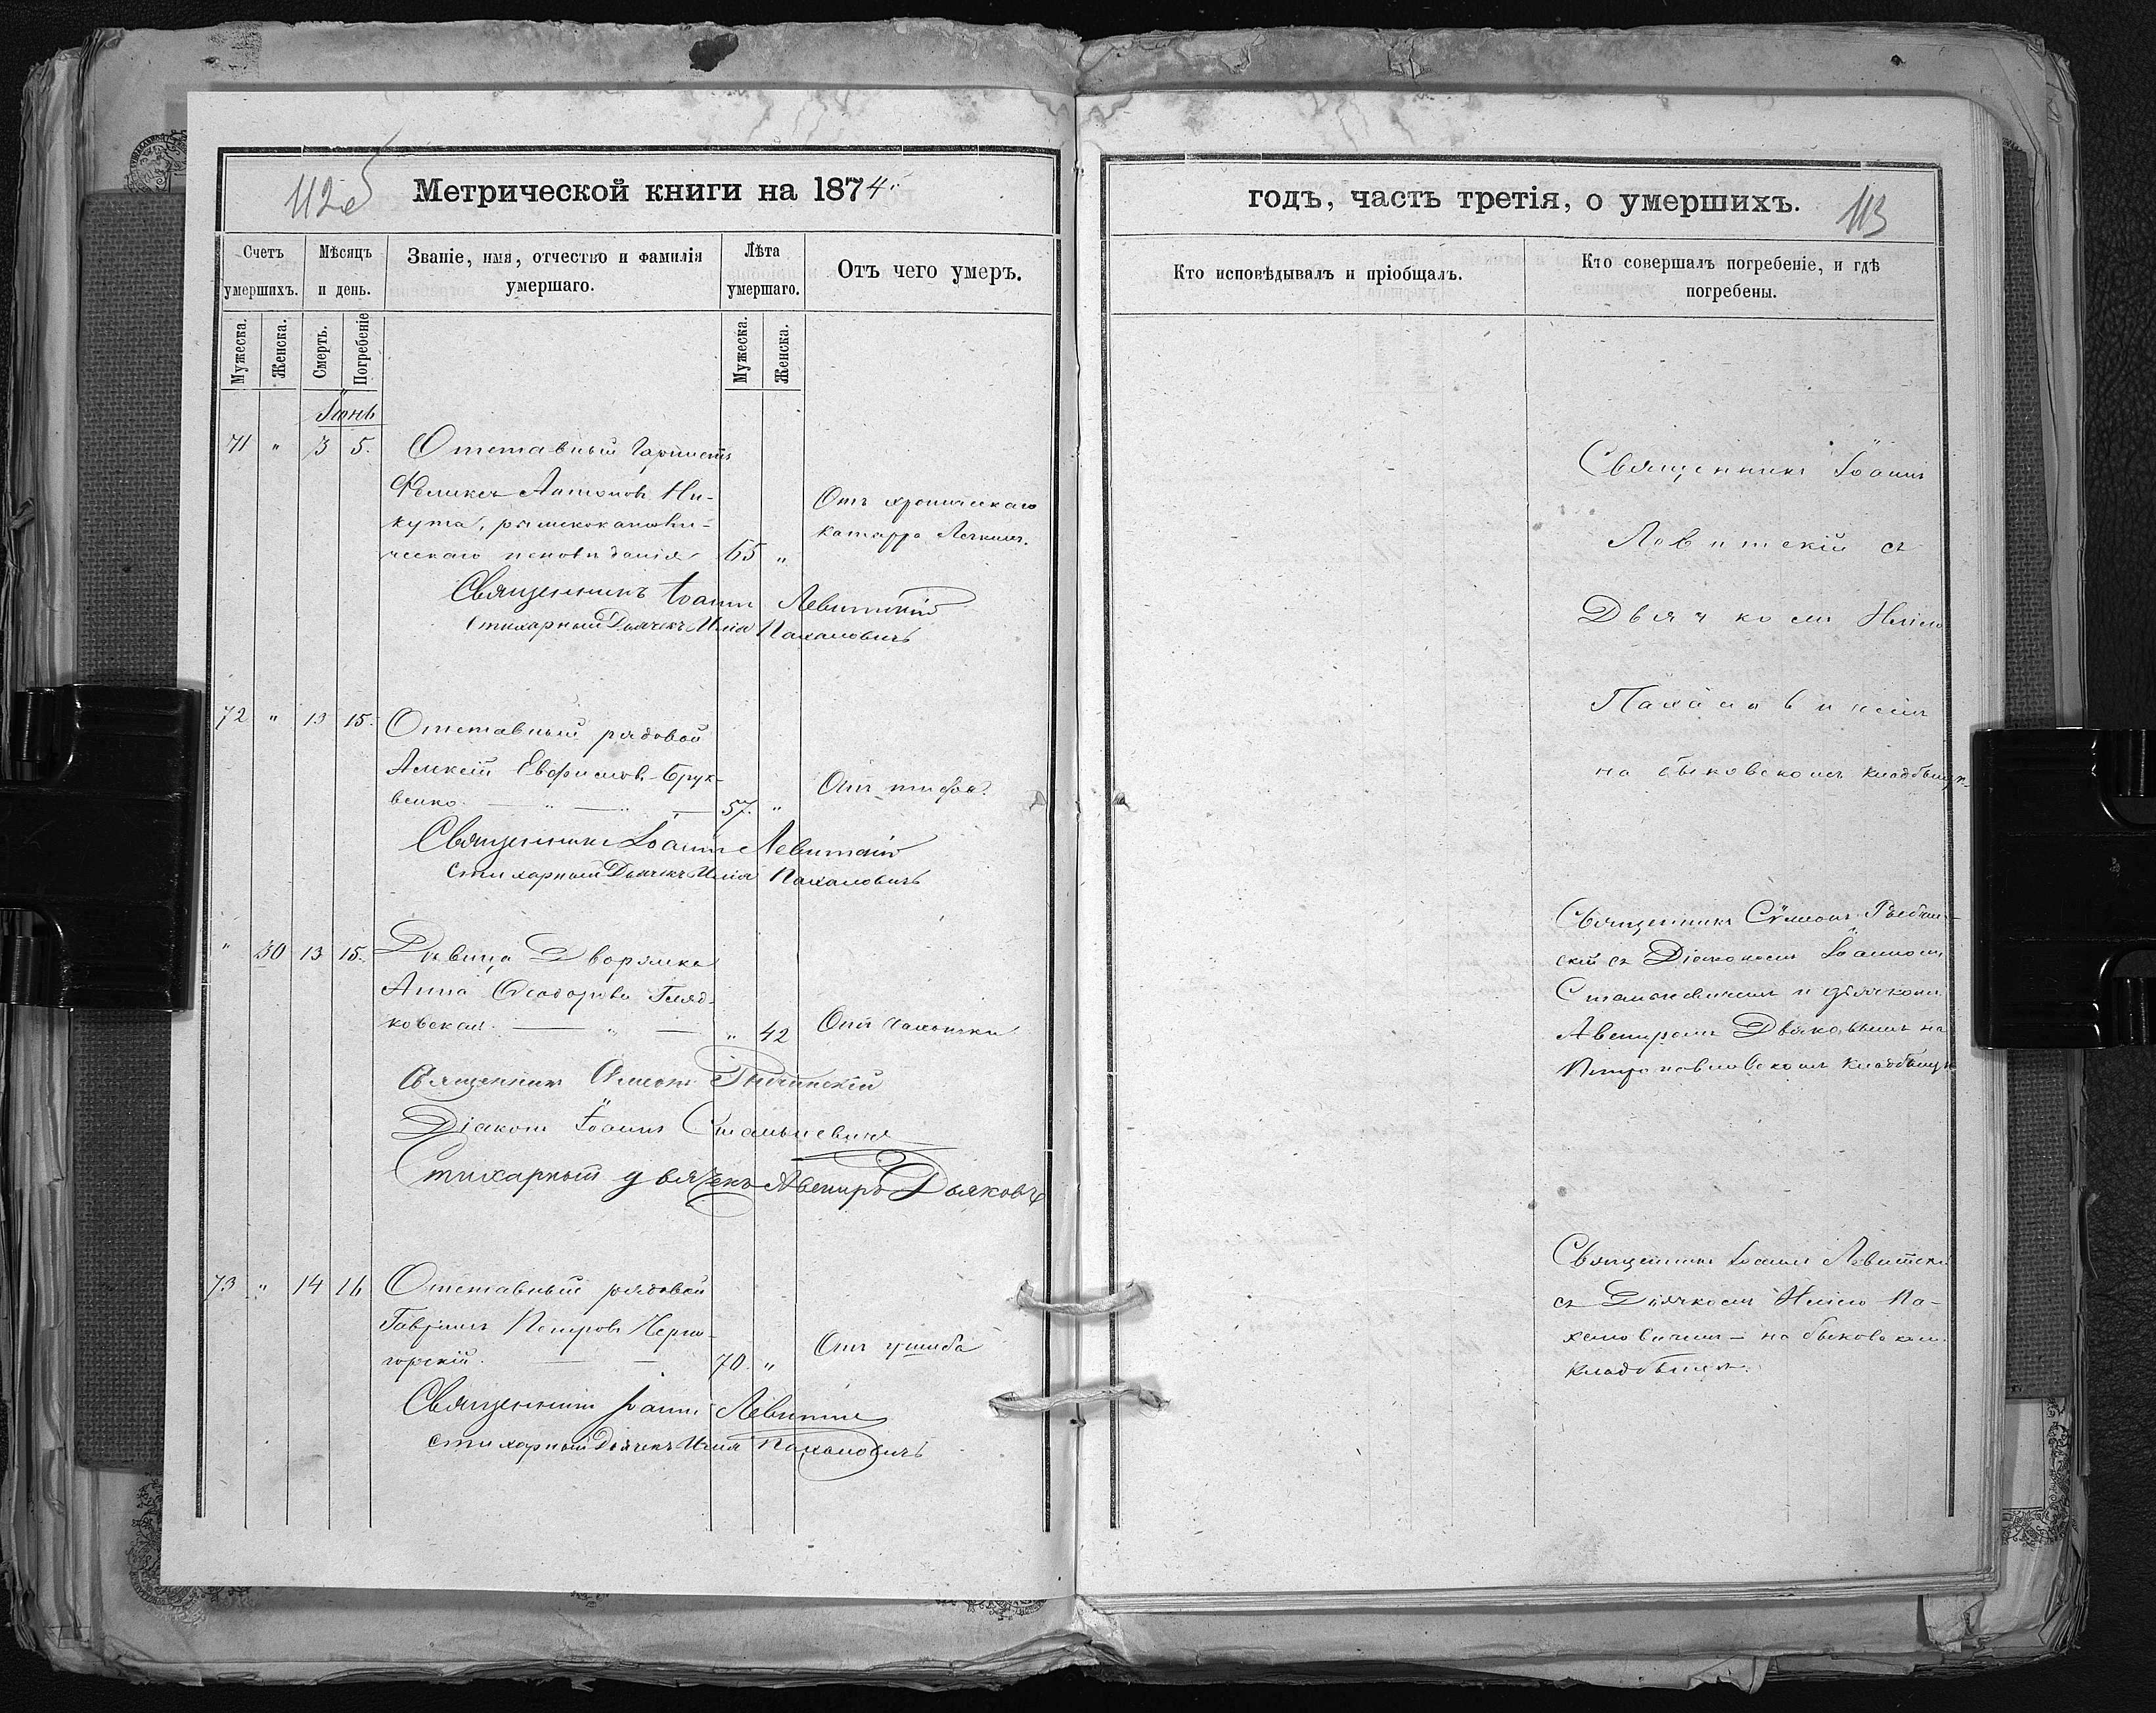 112об
Метрической книги на 1874.
Счетъ умершихъ.
Мѣсяцъ и день.
Званіе, имя, отчество и фамилія умершаго.
Лѣта умершаго.
Отъ чего умеръ.
Мужеска.
Женска.
Смерть.
Погребеніе
Мужеска.
Женска.
Іюнь
71 " 3 5. Отставный
Феликсъ Антоновъ Ни-
кута, римскокатоли-
ческаго исповѣданія 65 "
Отъ хроническаго
катарра Легкихъ.
Священникъ Іоаннъ Левитскій
Стихарный Дьячекъ Илія Пахаловичъ
72 " 13 15. Отставный рядовой
Алексій Евфимовъ
венко. 57. "
Отъ тифа.
Священникъ Іоаннъ Левитскій
Стихарный Дьячекъ Илія Пахаловичъ
" 30 13 15. Дѣвица Дворянка
Анна Ѳеодорова Гляд-
ковская. " 42
Отъ чахотки
Священникъ Симеонъ
Діаконъ Іоаннъ Стальневичъ
Стихарный дьячекъ Авениръ Дьяковъ
73 " 14 16 Отставный рядовой
Гавріилъ Петровъ Черно-
горскій. 70. "
Отъ ушиба
Священникъ Іоаннъ Левитскій
Стихарный Дьячекъ Илія Пахаловичъ
годъ, часть третія, о умершихъ.
113
Кто исповѣдывалъ и пріобщалъ.
Кто совершалъ погребеніе, и гдѣ погребены.
Священникъ Іоаннъ
Левитскій съ
Дьячкомъ Иліею
Пахаловичемъ
на быковскомъ кладбищѣ.
Священникъ Сѵмеонъ
скій съ Діакономъ Іоанномъ
Стальневичемъ и дьячкомъ
Авениромъ Дьяковымъ на
Петропавловскомъ кладбищѣ
Священникъ Іоаннъ Левитскій
съ Дьячкомъ Иліею Па-
халовичемъ – на быковском
кладбищѣ.